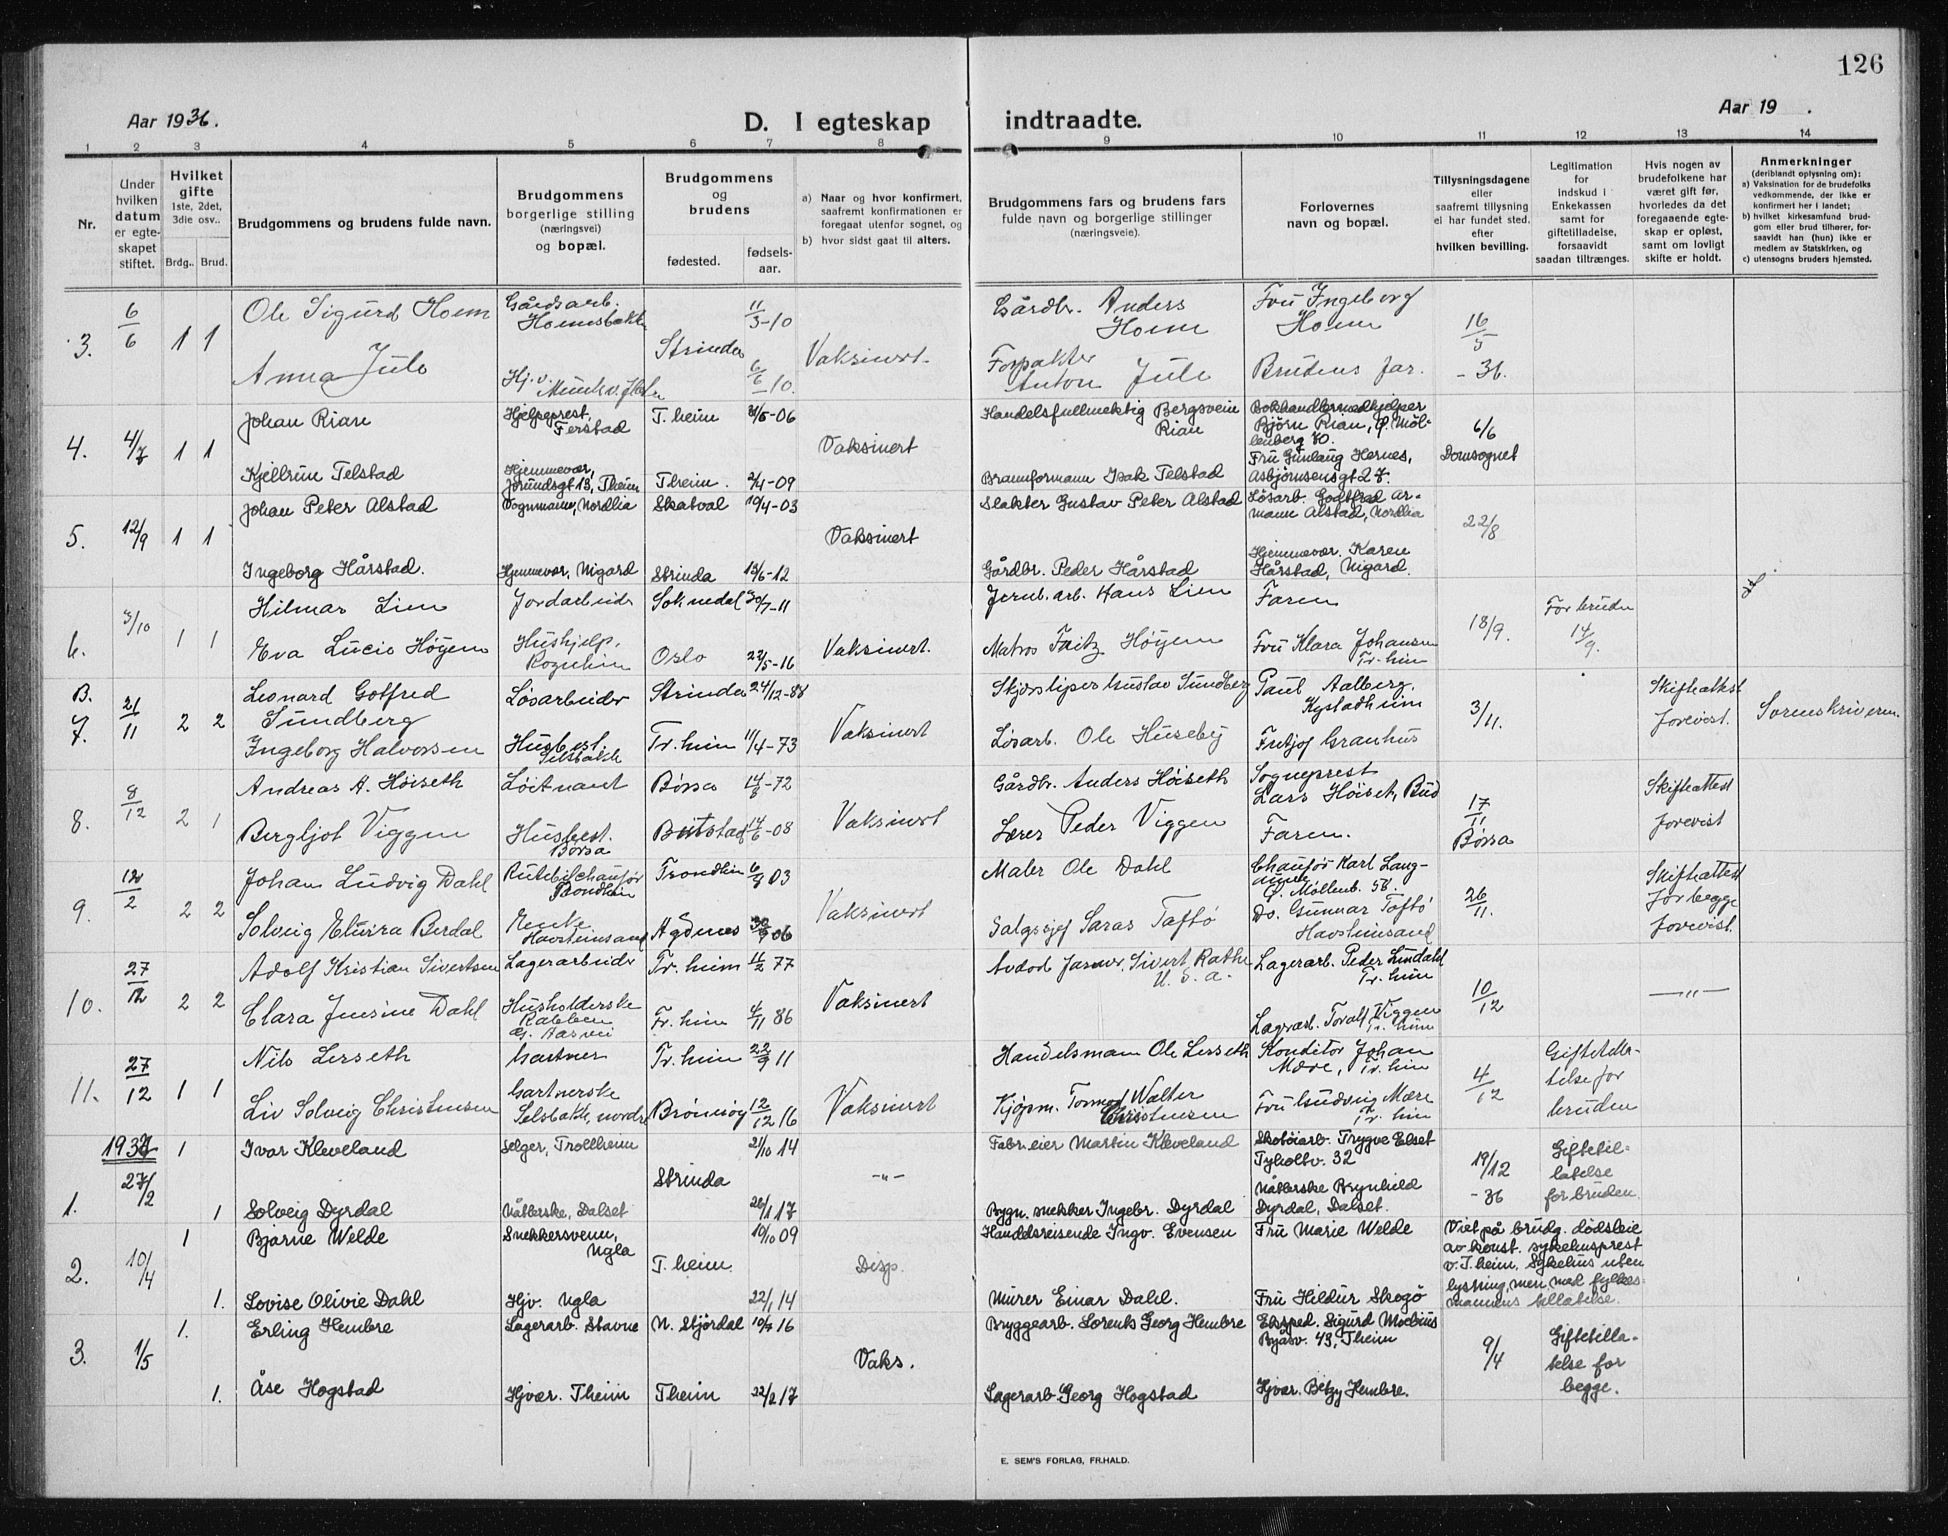 126
Aar 1936.
D. I egteskap indtraadte.
Aar 19 .
1 2 3 4 5 6 7 8 9 10 11 12 13 14
Nr.
Under hvilken datum er egteskapet stiftet.
Hvilket gifte 1ste, 2det, 3die osv..
Brdg.. Brud.
Brudgommens og brudens fulde navn.
Brudgommens borgerlige stilling (næringsvei) og bopæl.
Brudgommens og brudens
fødested. fødselsaar.
a) Naar og hvor konfirmert, saafremt konfirmationen er foregaat utenfor sognet, og
b) hvor sidst gaat til alters.
Brudgommens fars og brudens fars fulde navn og borgerlige stillinger (næringsveie).
Forlovernes navn og bopæl.
Tillysningsdagene eller saafremt tillysning ei har fundet sted, efter hvilken bevilling.
Legitimation for indskud i Enkekassen samt for giftetilladelse, forsaavidt saadan tiltrænges.
Hvis nogen av brudefolkene har været gift før, hvorledes da det foregaaende egteskap er opløst, samt om lovligt skifte er holdt.
Anmerkninger (deriblandt oplysning om):
a) Vaksination for de brudefolks vedkommende, der ikke er konfirmert her i landet;
b) hvilket kirkesamfund brudgom eller brud tilhører, forsaavidt han (hun) ikke er medlem av Statskirken, og
c) utensogns bruders hjemsted.
3. 6/6 1 1 Ole Sigurd Hoem Gårdsarb. Hoemsbakk 11/3-10 Gårdbr. Anders Hoem Fru Ingeborg Hoem 16/5 -36.
Strinda Vaksinert.
Anna Jule Hj.v. 6/6 10. Forpakter Anton Jule Brudens far.
4. 4/7 1 1 Johan Rian Hjelpeprest, Ferstad T.heim 31/5-06 Vaksinert Handelsfullmektig Bergsvein Rian Bokhandlermedhjelper Bjørn Rian, Ø. Møllenberg 70. 6/6 Domsognet
Kjellrun Telstad Hjemmevær, Jørundsgt 13, Theim T.heim. 2/4-09 Brannformann Isak Telstad Fru Gunlaug Hernes, Asbjørnsensgt 27.
5. 12/9 1 1 Johan Peter Alstad Vognmann, Nordlia Skatval 19/4-03 Vaksinert Slakter Gustav Peter Alstad Løsarb. Godtfred Armann Alstad, Nordlia 22/8
Ingeborg Hårstad. Hjemmevær, Nigard Strinda 13/6-12 Gårdbr. Peder Hårstad Hjemmevær. Karen Hårstad, Nigard.
6. 3/10 1 1 Hilmar Lien Jordarbeider Soknedal 30/7-11 Jernb.arb. Hans Lien Faren 18/9. For bruden 14/9.
Eva Lucie Høyem Hushjelp, Rognheim Oslo 22/5-16 Vaksinert. Matros Fritz Høyem Fru Klara Johansen Tr.heim
B. 7. 21/11 2 2 Leonard Gotfred Sundberg Løsarbeider Strinda 24/12-88 Vaksinert Skjærsliper Gustav Sundberg Paul Aalberg, Kystadheim 3/11. Skifteattest forevist. Sorenskriveren.
Ingeborg Halvorsen Husbest. Selsbakk Tr.heim 11/4-73 Løsarb. Ole Huseby Fritjof Granhus
8. 8/12 2 1 Andreas A. Høiseth Løitnant Børsa 14/8-72 Vaksinert Gårdbr. Anders Høiseth Sogneprest Lars Høiset, Bud 17/11 Børsa Skifteattest forevist
Bergljot Viggen Husbest. Børsa Beitstad 14/6-08 Lærer Peder Viggen Faren.
9. 12/2 2 2 Johan Ludvig Dahl Rutebilchauffør Trondheim Trondheim 6/8 03 Vaksinert Maler Ole Dahl Chaufør Karl Lang- Ø. Møllenb. 58. 26/11. Skifteattest for begge forevist.
Solveig Elvira Berdal Havsteinsand Agdenes 30/9 06 Salgssjef Saras Taftø Do. Gunnar Taftø Havsteinsand
10. 27/12 2 2 Adolf Kristian Sivertsen Lagerarbeider Tr.heim 11/2 77 Vaksinert Avdød Sivert Rathe U.S.a. Lagerarb. Peder Lundahl Tr.heim 10/12 —"—
Clara Jensine Dahl Husholderske Tr.heim 4/11 86 Lagerarb. Toralf Viggen Tr.heim
11. 27/12 1 1 Nils Lerseth Gartner Tr.heim 22/9 11 Vaksinert Handelsmann Ole Lerseth Konditor Johan Mære, Tr.heim 4/12 Giftetillatelse for bruden
Liv Solveig Christensen Gartnerske Selsbakk, nordre Brønnøy 12/12 16 Kjøpm. Tormod Walter Christensen Fru Gudveig Mære Tr.heim
1937
1. 27/2 1 Ivar Kleveland Selger, Trollheim 21/10 14 Fabr.eier Martin Kleveland Skotøiarb. Trygve Elset Tyholtv. 32 19/12 -36 Giftetillatelse for bruden.
Strinda -"-
1 Solveig Dyrdal Nåtlerske, Dalset 26/1 17 Bygn. snekker Ingebr. Dyrdal Nåtlerske Brynhild Dyrdal, Dalset.
2. 10/4 1 Bjarne Welde Snekkersvenn, Ugla 10/10 09 Handelsreisende Ingv. Evensen Fru Marie Welde Viet på brudg. dødsleie av konst. sykehusprest v. T.heim. Sykehus uten lysning, men med fylkesmannens tillatelse.
T.heim Disp.
1. Lovise Olivie Dahl Hjv. Ugla 22/1 14 Murer Einar Dahl. Fru Hildur Skogø
3. 1/5 1. Erling Hembre Lagerarb. Stavne N. Stjørdal 10/7 16 Bryggearb. Lorents Georg Hembre Eksped. Sigurd Moebius Byåsv. 43, Theim 9/4 Giftetillatelse for begge.
Vaks.
1. Åse Hogstad Hjvær. Theim Theim 22/2 17 Lagerarb. Georg Hogstad Hjvær. Betzy Hembre.
E. SEM'S FORLAG, FR.HALD.